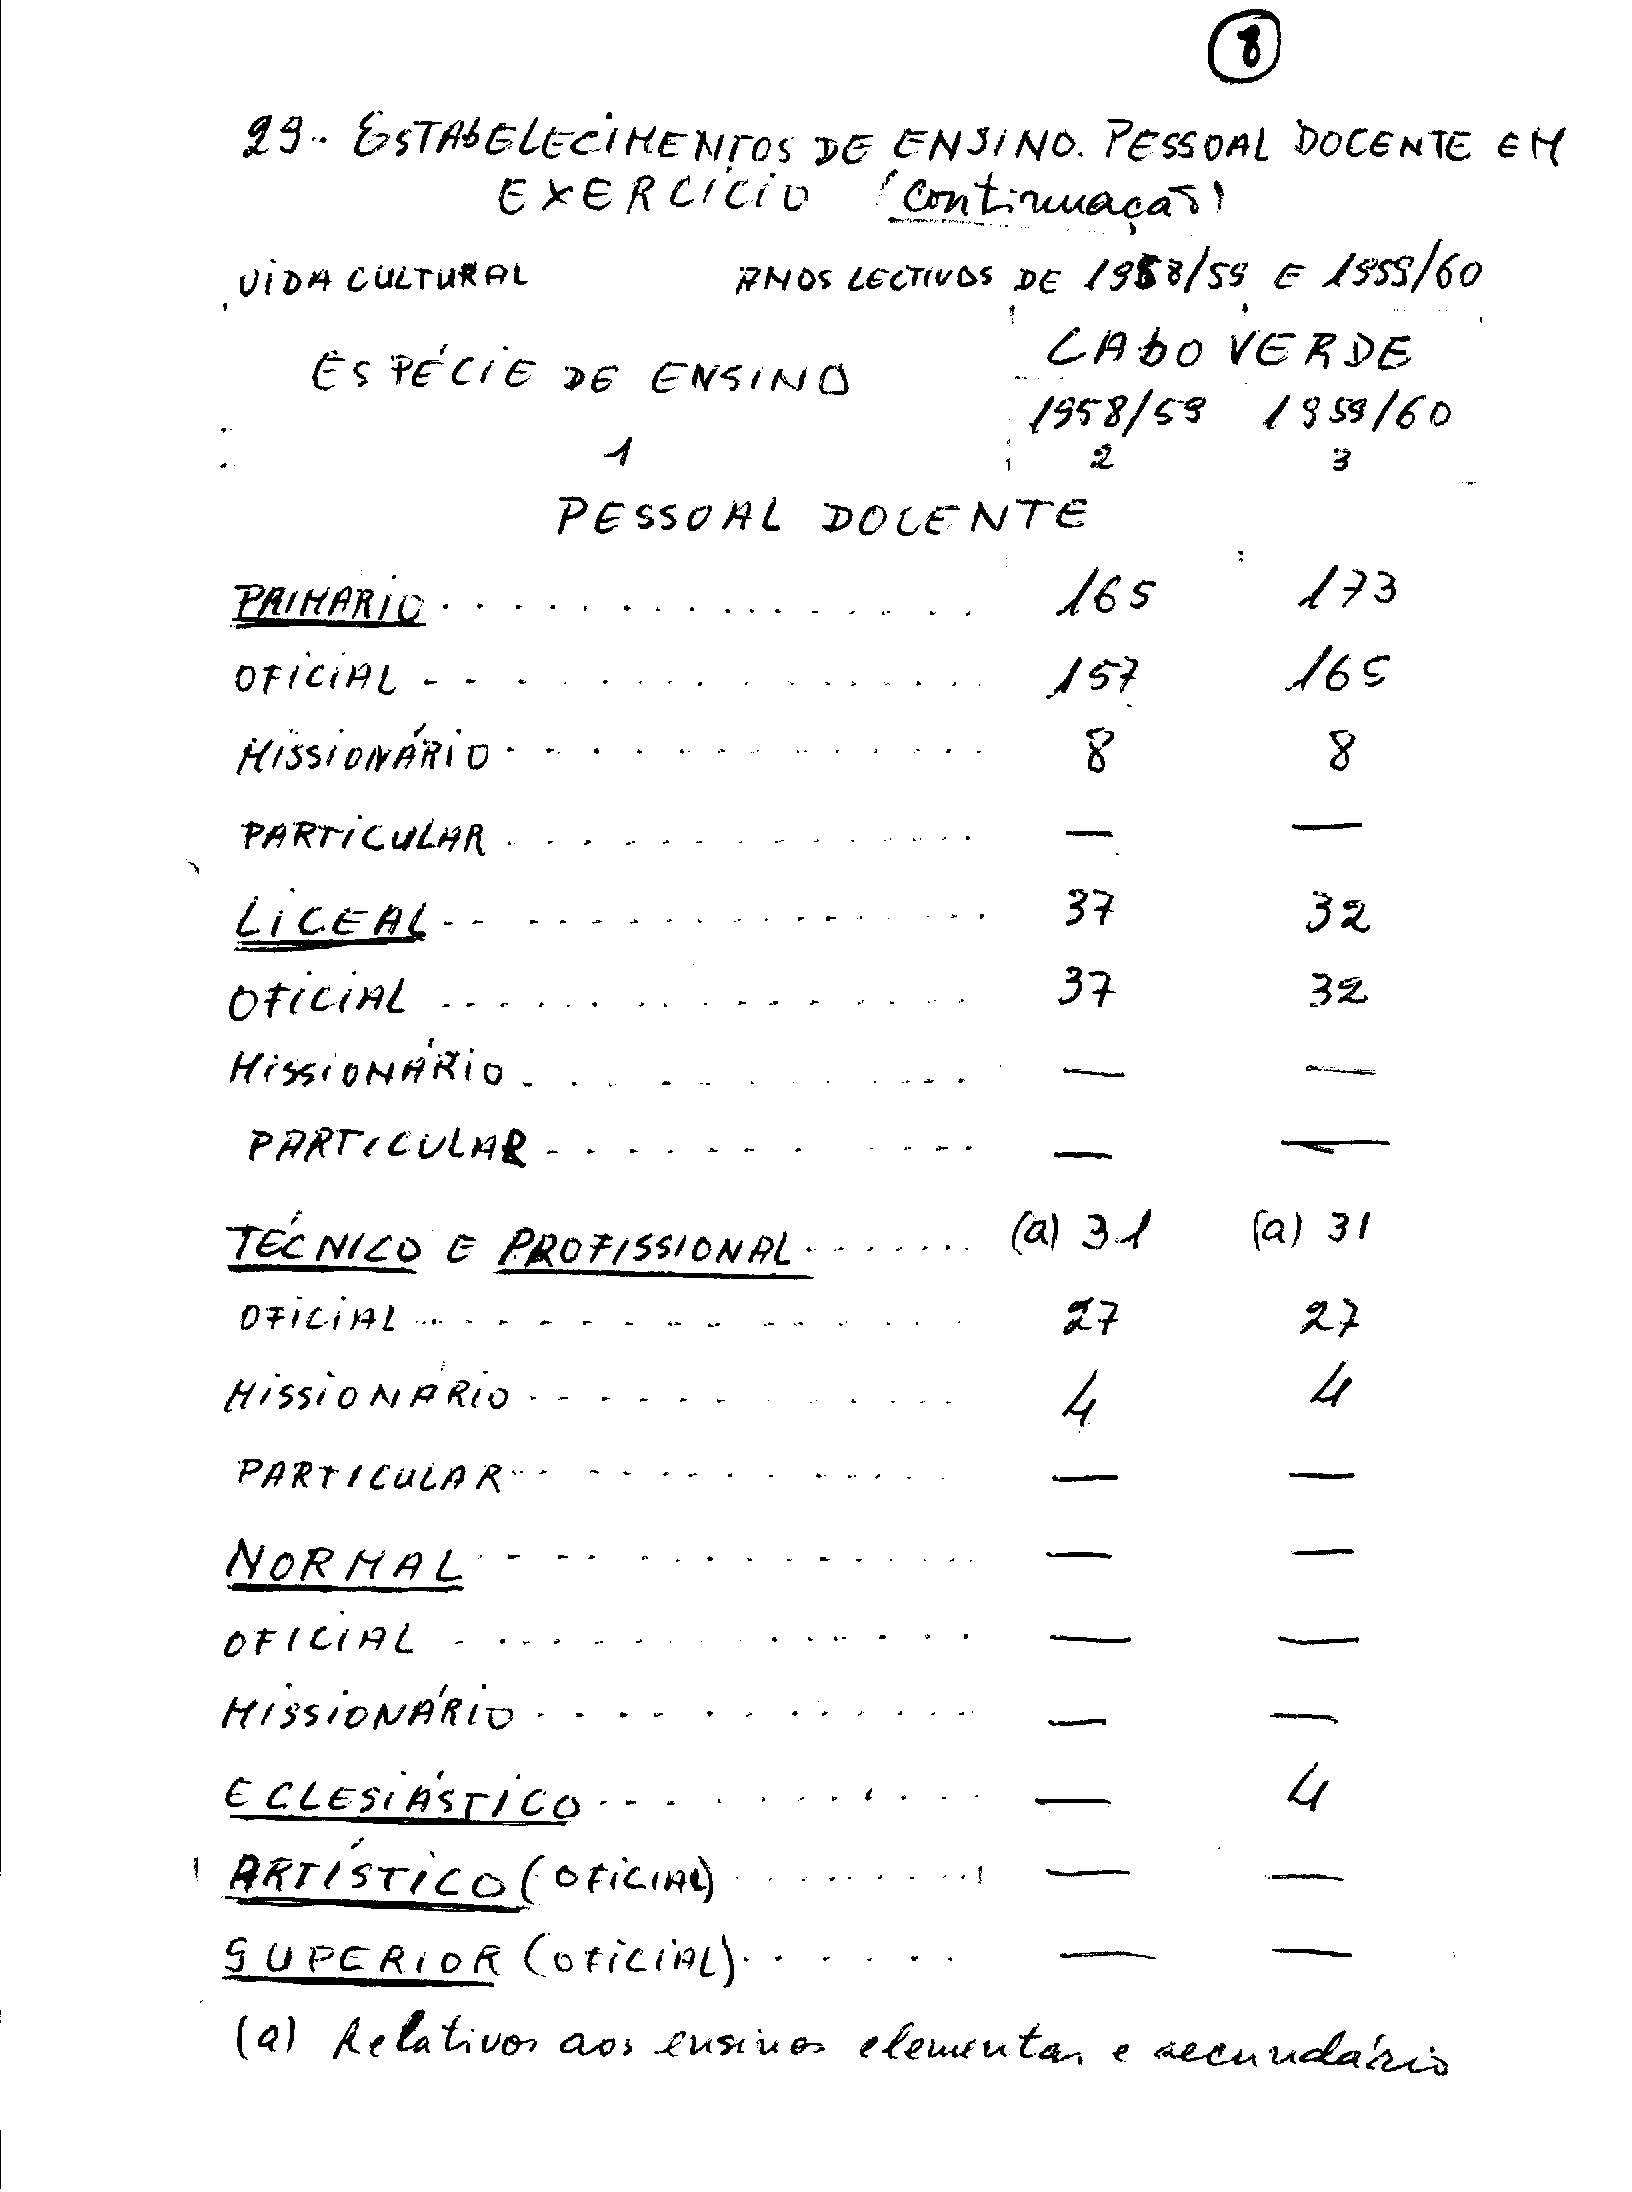 8
29.. ESTABELECIMENTOS DE ENSINO. PESSOAL DOCENTE EM
EXERCÍCIO (continuação)
VIDA CULTURAL ANOS LECTIVOS DE 1958/59 E 1959/60
ESPÉCIE DE ENSINO CABO VERDE
1958/59 1959/60
1 2 3
PESSOAL DOCENTE
PRIMARIO 165 173
OFICIAL 157 165
MISSIONÁRIO 8 8
PARTICULAR — —
LICEAL 37 32
OFICIAL 37 32
MISSIONÁRIO — —
PARTICULAR — —
TÉCNICO E PROFISSIONAL (a) 31 (a) 31
OFICIAL 27 27
MISSIONÁRIO 4 4
PARTICULAR — —
NORMAL — —
OFICIAL — —
MISSIONÁRIO — —
ECLESIÁSTICO — 4
ARTÍSTICO (OFICIAL) — —
SUPERIOR (OFICIAL) — —
(a) Relativos aos ensinos elementar e secundário